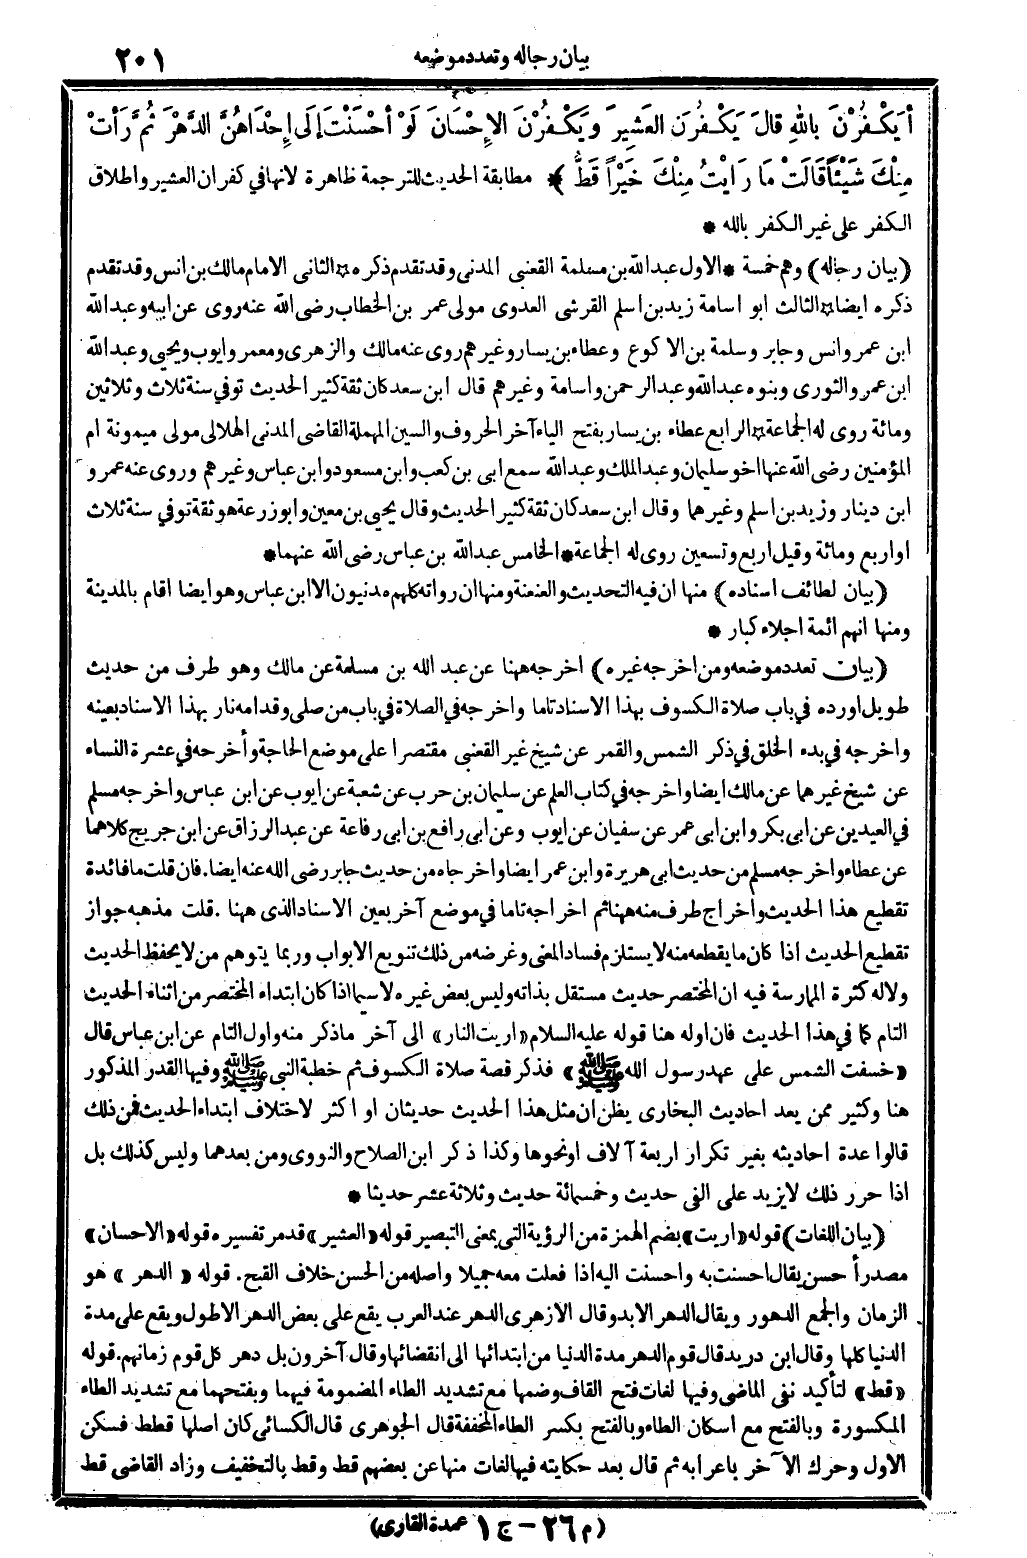 بيان رجاله وتعدد موضعه ٢٠١
أَيَكْفُرْنَ بِاللهِ قالَ يَكْفُرْنَ العَشِيرَ وَيَكْفُرْنَ الإِحْسَانَ لَوْ أَحْسَنْتَ إِلَى إِحْدَاهُنَّ الدَّهْرَ ثُمَّ رَأَتْ
مِنْكَ شَيْئًا قَالَتْ مَا رَأَيْتُ مِنْكَ خَيْرًا قَطُّ ﴾ * مطابقة الحديث للترجمة ظاهرة لانها في كفران العشير واطلاق
الكفر على غير الكفر بالله *
(بيان رجاله) وهم خمسة * الاول عبد الله بن مسلمة القعنبي المدني وقد تقدم ذكره * الثاني الامام مالك بن انس وقد تقدم
ذكره ايضا * الثالث ابو اسامة زيد بن اسلم القرشي العدوي مولى عمر بن الخطاب رضى الله عنه روى عن ابيه وعبد الله
ابن عمر وانس وجابر وسلمة بن الاكوع وعطاء بن يسار وغيرهم روى عنه مالك والزهرى ومعمر وايوب ويحيى وعبد الله
ابن عمر والثورى وبنوه عبد الله وعبد الرحمن واسامة وغيرهم قال ابن سعد كان ثقة كثير الحديث توفي سنة ثلاث وثلاثين
ومائة روى له الجماعة * الرابع عطاء بن يسار بفتح الياء آخر الحروف والسين المهملة القاضي المدني الهلالى مولى ميمونة ام
المؤمنين رضى الله عنها اخو سليمان وعبد الملك وعبد الله سمع ابى بن كعب وابن مسعود وابن عباس وغيرهم وروى عنه عمرو
ابن دينار وزيد بن اسلم وغيرهما وقال ابن سعد كان ثقة كثير الحديث وقال يحيى بن معين وابو زرعة هو ثقة توفي سنة ثلاث
او اربع ومائة وقيل اربع وتسعين روى له الجماعة * الخامس عبد الله بن عباس رضى الله عنهما *
(بيان لطائف اسناده) منها ان فيه التحديث والعنعنة ومنها ان رواته كلهم مدنيون الا ابن عباس وهو ايضا اقام بالمدينة
ومنها انهم ائمة اجلاء كبار *
(بيان تعدد موضعه ومن اخرجه غيره) اخرجه ههنا عن عبد الله بن مسلمة عن مالك وهو طرف من حديث
طويل اورده في باب صلاة الكسوف بهذا الاسناد تاما واخرجه في الصلاة في باب من صلى وقدامه نار بهذا الاسناد بعينه
واخرجه في بدء الخلق في ذكر الشمس والقمر عن شيخ غير القعنبي مقتصرا على موضع الحاجة وأخرجه في عشرة النساء
عن شيخ غيرهما عن مالك ايضا واخرجه في كتاب العلم عن سليمان بن حرب عن شعبة عن ايوب عن ابن عباس واخرجه مسلم
في العيدين عن ابى بكر وابن ابى عمر عن سفيان عن ايوب وعن ابى رافع بن ابى رفاعة عن عبد الرزاق عن ابن جريج كلاهما
عن عطاء واخرجه مسلم من حديث ابى هريرة وابن عمر ايضا واخرجاه من حديث جابر رضى الله عنه ايضا. فان قلت ما فائدة
تقطيع هذا الحديث واخراج طرف منه ههنا ثم اخراجه تاما في موضع آخر بعين الاسناد الذى ههنا. قلت مذهبه جواز
تقطيع الحديث اذا كان ما يقطعه منه لا يستلزم فساد المعنى وغرضه من ذلك تنويع الابواب وربما يتوهم من لا يحفظ الحديث
ولا له كثرة الممارسة فيه ان المختصر حديث مستقل بذاته وليس بعض غيره لا سيما اذا كان ابتداء المختصر من اثناء الحديث
التام كما في هذا الحديث فان اوله هنا قوله عليه السلام «اريت النار» الى آخر ما ذكر منه واول التام عن ابن عباس قال
«خسفت الشمس على عهد رسول الله ﷺ» فذكر قصة صلاة الكسوف ثم خطبة النبي ﷺ وفيها القدر المذكور
هنا وكثير ممن يعد احاديث البخارى يظن ان مثل هذا الحديث حديثان او اكثر لاختلاف ابتداء الحديث فمن ذلك
قالوا عدة احاديثه بغير تكرار اربعة آلاف او نحوها وكذا ذكر ابن الصلاح والنووى ومن بعدهما وليس كذلك بل
اذا حرر ذلك لا يزيد على الفى حديث وخمسمائة حديث وثلاثة عشر حديثا *
(بيان اللغات) قوله «اريت» بضم الهمزة من الرؤية التى بمعنى التبصير قوله «العشير» قد مر تفسيره قوله «الاحسان»
مصدر أحسن يقال احسنت به واحسنت اليه اذا فعلت معه جميلا واصله من الحسن خلاف القبح. قوله «الدهر» هو
الزمان والجمع الدهور ويقال الدهر الابد وقال الازهرى الدهر عند العرب يقع على بعض الدهر الاطول ويقع على مدة
الدنيا كلها وقال ابن دريد قال قوم الدهر مدة الدنيا من ابتدائها الى انقضائها وقال آخرون بل دهر كل قوم زمانهم. قوله
«قط» لتأكيد نفى الماضى وفيها لغات فتح القاف وضمها مع تشديد الطاء المضمومة فيهما وبفتحهما مع تشديد الطاء
المكسورة وبالفتح مع اسكان الطاء وبالفتح بكسر الطاء المخففة قال الجوهرى قال الكسائى كان اصلها قطط فسكن
الاول وحرك الآخر باعرابه ثم قال بعد حكايته فيها لغات منها عن بعضهم قط وقط بالتخفيف وزاد القاضى قط
(م ٢٦ – ج ١ عمدة القارى)